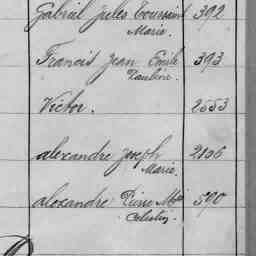 Gabriel Jules Toussaint 392
Marie.
Francis Jean Emile 393
Pauline.
Victor. 2553
alexandre Joseph 2106
Marie.
alexandre Pierre Mie 590
Célestin.